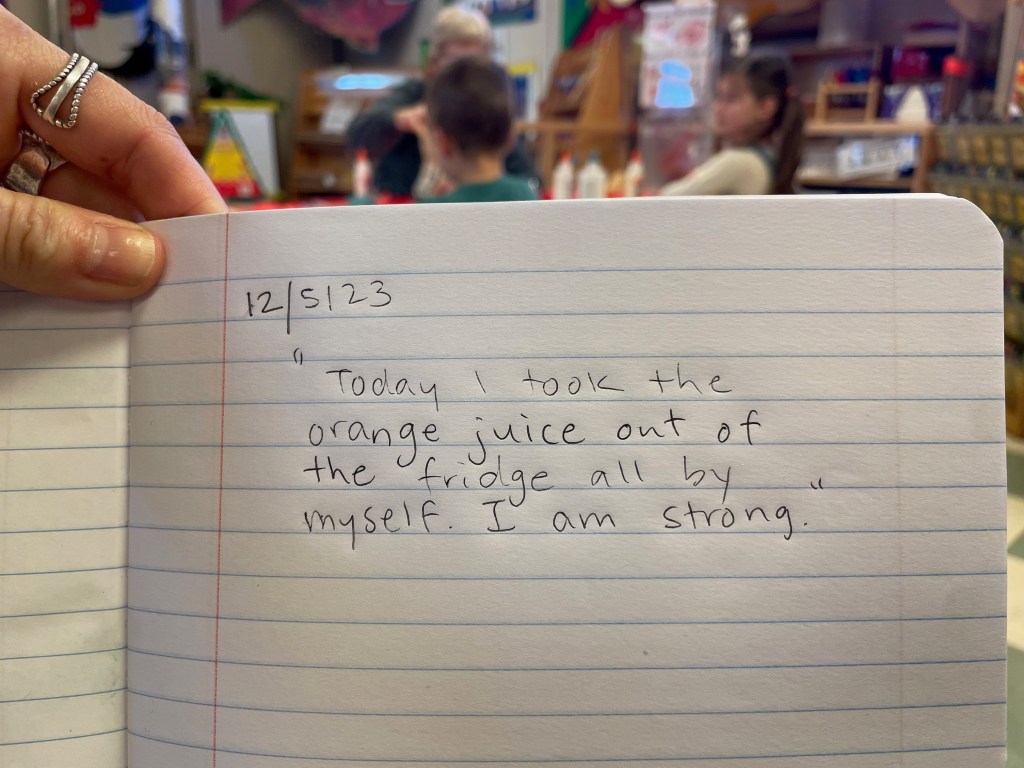 12/5/23
"Today I took the
orange juice out of
the fridge all by
myself. I am strong."